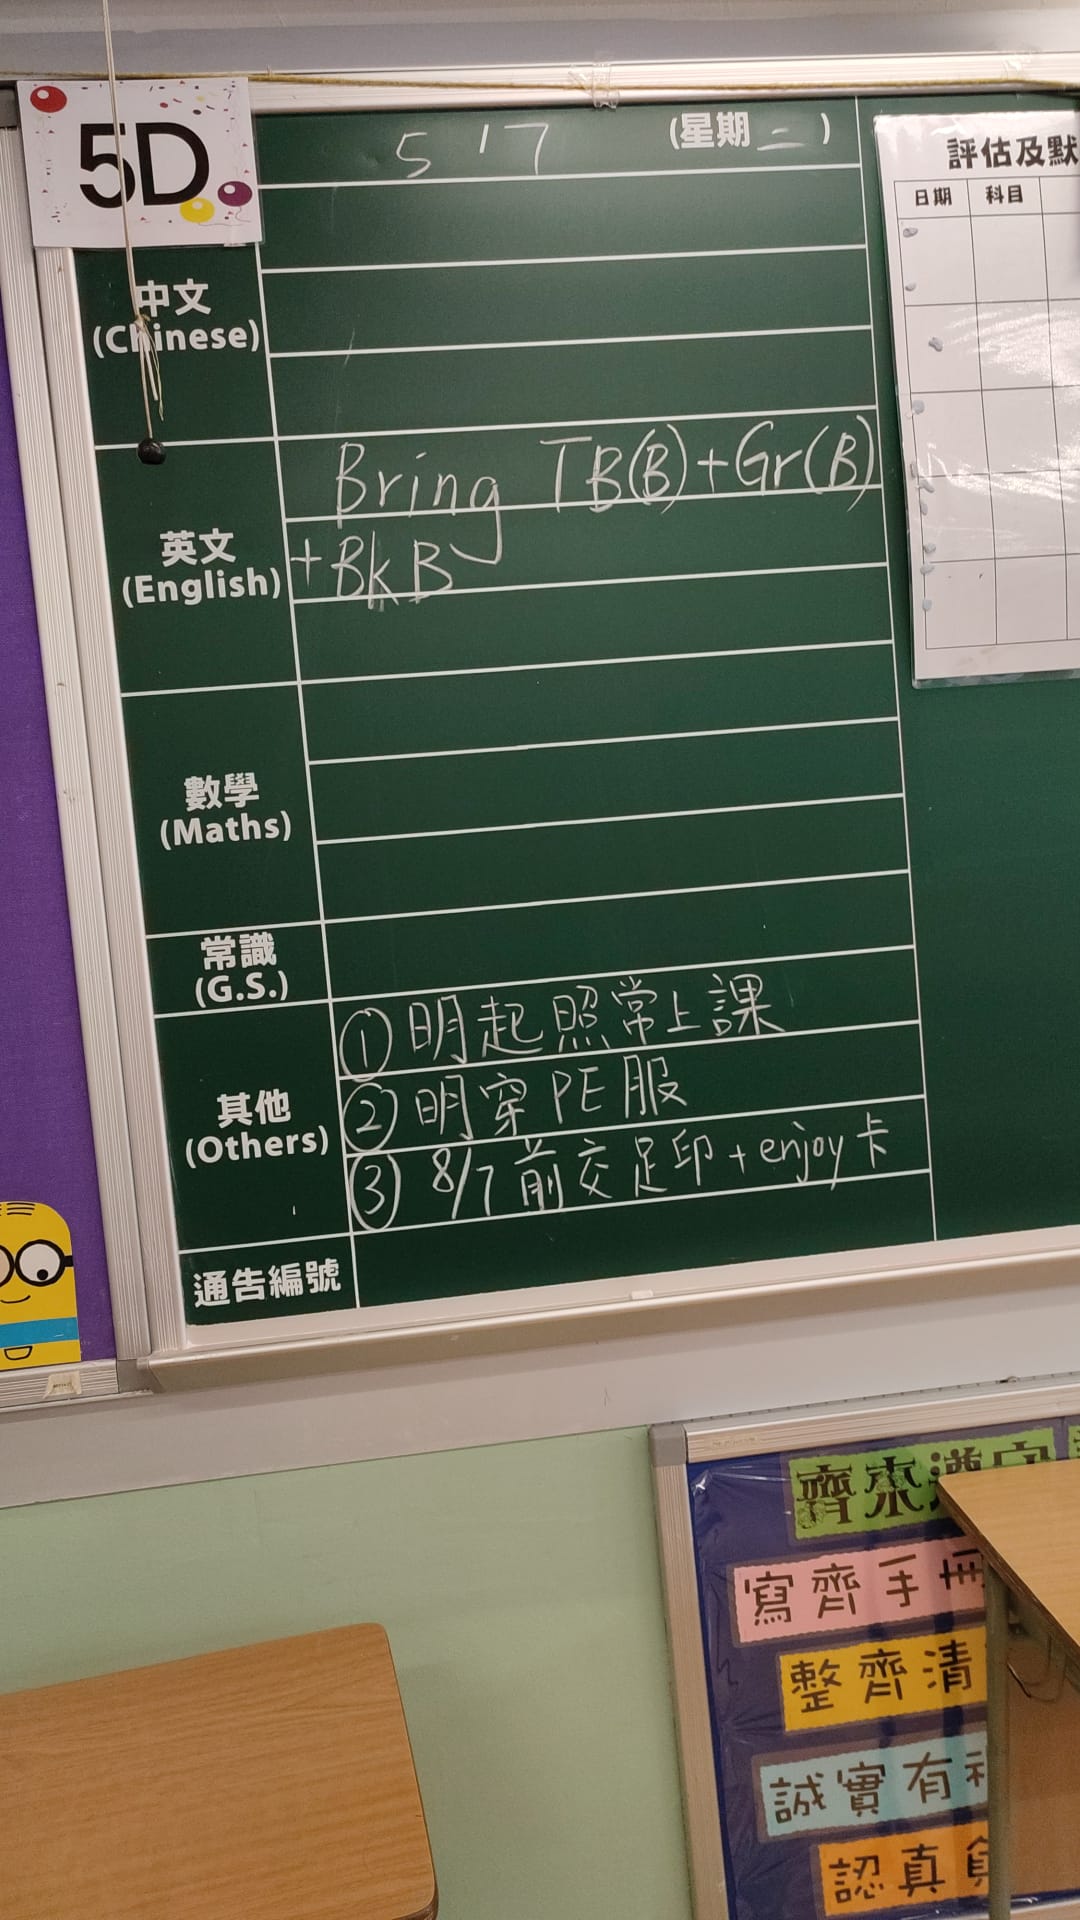 5D
5 / 7 (星期二)
中文
(Chinese)
英文
(English)
Bring TB(B)+Gr(B)
+BkB
數學
(Maths)
常識
(G.S.)
其他
(Others)
① 明起照常上課
② 明穿PE服
③ 8/7前交足印+enjoy卡
通告編號
評估及默
日期 科目
齊來遵守
寫齊手冊
整齊清
誠實有
認真